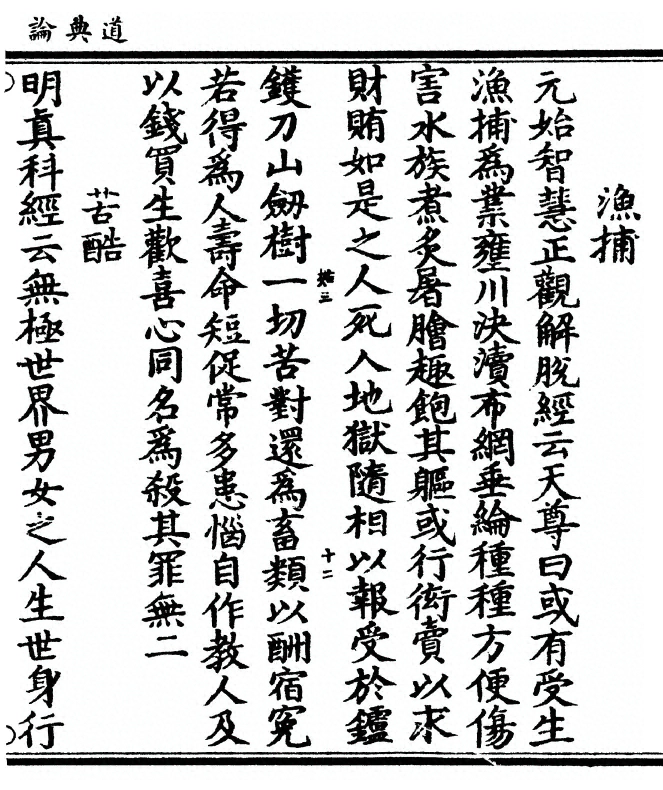 道典論
漁捕
元始智慧正觀解脫經云天尊曰或有受生
漁捕爲業壅川決瀆布網垂綸種種方便傷
害水族煮炙屠膾趣飽其軀或行衒賣以求
財賄如是之人死入地獄隨相以報受於鑪
鑊刀山劒樹一切苦對還爲畜類以酬宿冤
若得爲人壽命短促常多患惱自作教人及
以錢買生歡喜心同名爲殺其罪無二
苦酷
明真科經云無極世界男女之人生世身行
十二